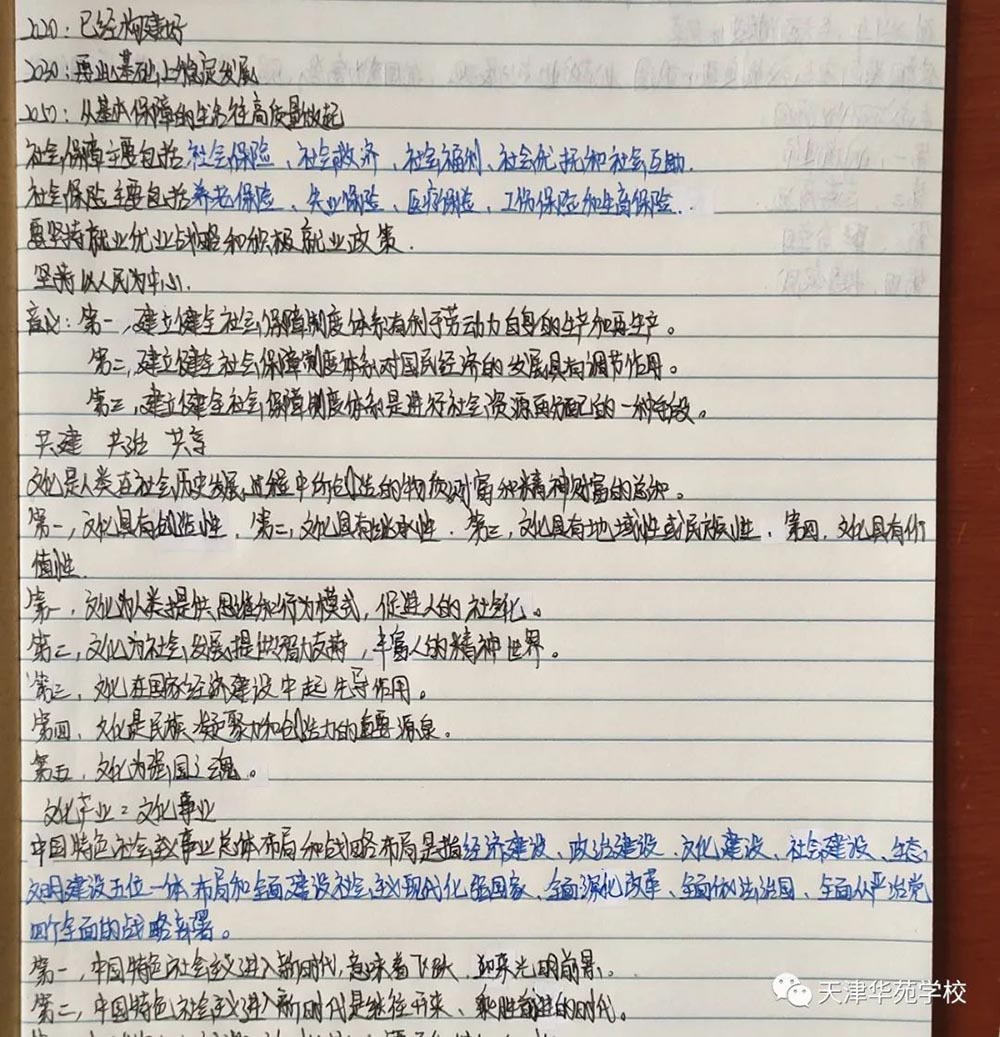 2020：已经构建好
2030：再此基础上稳定发展
2050：从基本保障的生活往高质量做起
社会保障主要包括社会保险、社会救济、社会福利、社会优抚和社会互助.
社会保险主要包括养老保险、失业保险、医疗保险、工伤保险和生育保险.
要坚持就业优业战略和积极就业政策.
坚持以人民为中心.
意义：第一,建立健全社会保障制度体系有利于劳动力自身的生产和再生产。
第二,建立健全社会保障制度体系对国民经济的发展具有调节作用。
第三,建立健全社会保障制度体系是进行社会资源再分配的一种手段。
共建 共治 共享
文化是人类在社会历史发展过程中所创造的物质财富和精神财富的总和。
第一,文化具有创造性.第二,文化具有继承性.第三,文化具有地域性或民族性.第四,文化具有价
值性.
第一,文化为人类提供思维和行为模式,促进人的社会化。
第二,文化为社会发展提供智力支持,丰富人的精神世界。
第三,文化在国家经济建设中起先导作用。
第四,文化是民族凝聚力和创造力的重要源泉。
第五,文化为强国之魂。
文化产业=文化事业
中国特色社会主义事业总体布局和战略布局是指经济建设、政治建设、文化建设、社会建设、生态
文明建设五位一体布局和全面建设社会主义现代化强国家、全面深化改革、全面依法治国、全面从严治党
四个全面的战略部署。
第一,中国特色社会主义进入新时代,意味着飞跃、迎来光明前景.
第二,中国特色社会主义进入新时代是继往开来、乘胜前进的时代。
天津华苑学校